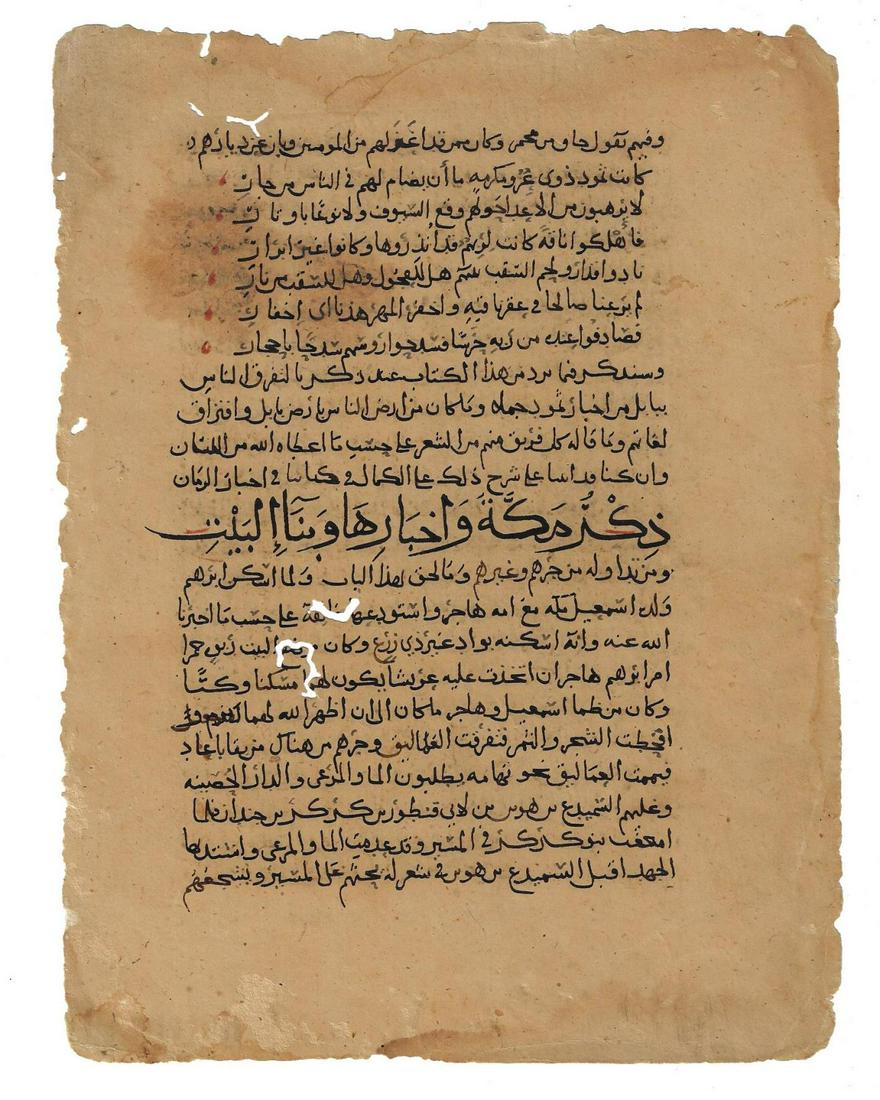 وفيهم يقول حباب بن عمر وكان ممن قد اعتزلهم من المومنين وبان عن ديارهم
كانت ثمود ذوي عز ومكرمه ما أن يضام لهم في الناس من جار
لا يرهبون من الاعدا حولهم وقع السيوف ولا نزعا باوتار
فأهلكوا ناقة كانت لربهم قد أنذروها وكانوا غير ابرار
نادوا قدارا ولحم السقب بينهم هل للعجول وهل للسقب من ثار
لم يرعيا صالحا في عقر ناقته واخفروا العهد هديا اي اخفار
فصادفوا عنده من ربه حرسا فشدخوا روسهم شدخا باحجار
وسنذكر فيما يرد من هذا الكتاب عند ذكرنا لتفرق الناس
ببابل من اخبار ثمود جملا وما كان من ارض الناس بارض بابل وافتراق
لغاتهم وما قاله كل فريق منهم من الشعر على حسب ما اعطاه الله من اللسان
وان كنا قد اتينا على شرح ذلك على الكمال في كتابنا في اخبار الزمان
ذكر مكة واخبارها وبنا البيت
ومن تداوله من جرهم وغيرهم وما لحق بهذا الباب ولما اسكن ابرهيم
ولده اسمعيل مكه مع امه هاجر واستودعهما خالقه على حسب ما اخبرنا
الله عنه وانه اسكنه بواد غير ذي زرع وكان موضع البيت ربوه حمرا
امر ابرهيم هاجر ان اتخذت عليه عريشا يكون لها مسكنا وكنا
وكان من ظما اسمعيل وهاجر ما كان الى ان اظهر الله لهما زمزم و
اقحطت الشحر واليمن فتفرقت العماليق وجرهم من هناك من بقايا عاد
فيممت العماليق نحو تهامه يطلبون الما والمرعى والدار الخصيبه
وعليهم السميدع بن هوبر بن لاي بن قنطور بن كركر بن حيدان فلما
امعنت بنو كركر في المسير وقد عدمت الما والمرعى واشتد بها
الجهد اقبل السميدع بن هوبر في شعر له يحثهم على المسير ويشجعهم